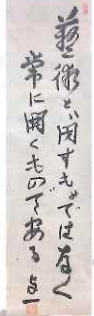 藝術とは閉すものではなく
常に開くものである 与一